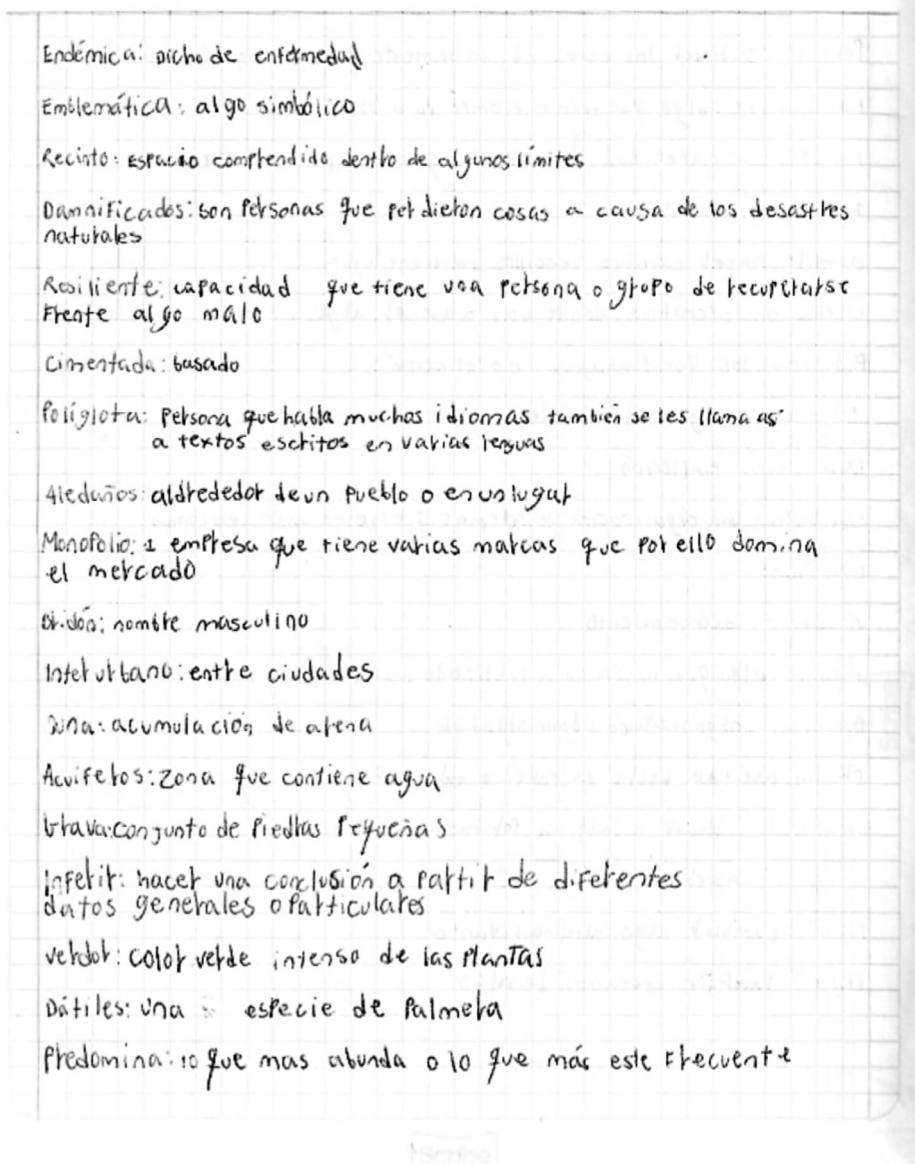 Endémica: Dicho de enfermedad
Emblemática: algo simbólico
Recinto: Espacio comprendido dentro de algunos límites
Damnificados: son Personas que perdieron cosas a causa de los desastres
naturales
Resiliente: capacidad que tiene una persona o grupo de recuperarse
Frente algo malo
Cimentada: basado
Políglota: Persona que habla muchos idiomas también se les llama así
a textos escritos en varias lenguas
Aledaños: aldrededor de un Pueblo o en un lugar
Monopolio: 1 empresa que tiene varias marcas que por ello domina
el mercado
Bridón: nombre masculino
Interurbano: entre ciudades
Duna: acumulación de arena
Acuiferos: Zona que contiene agua
Grava: conjunto de Piedras Pequeñas
Inferir: hacer una conclusión a partir de diferentes
datos generales o Particulares
verdor: color verde intenso de las Plantas
Dátiles: una especie de Palmera
Predomina: lo que mas abunda o lo que más este Frecuente